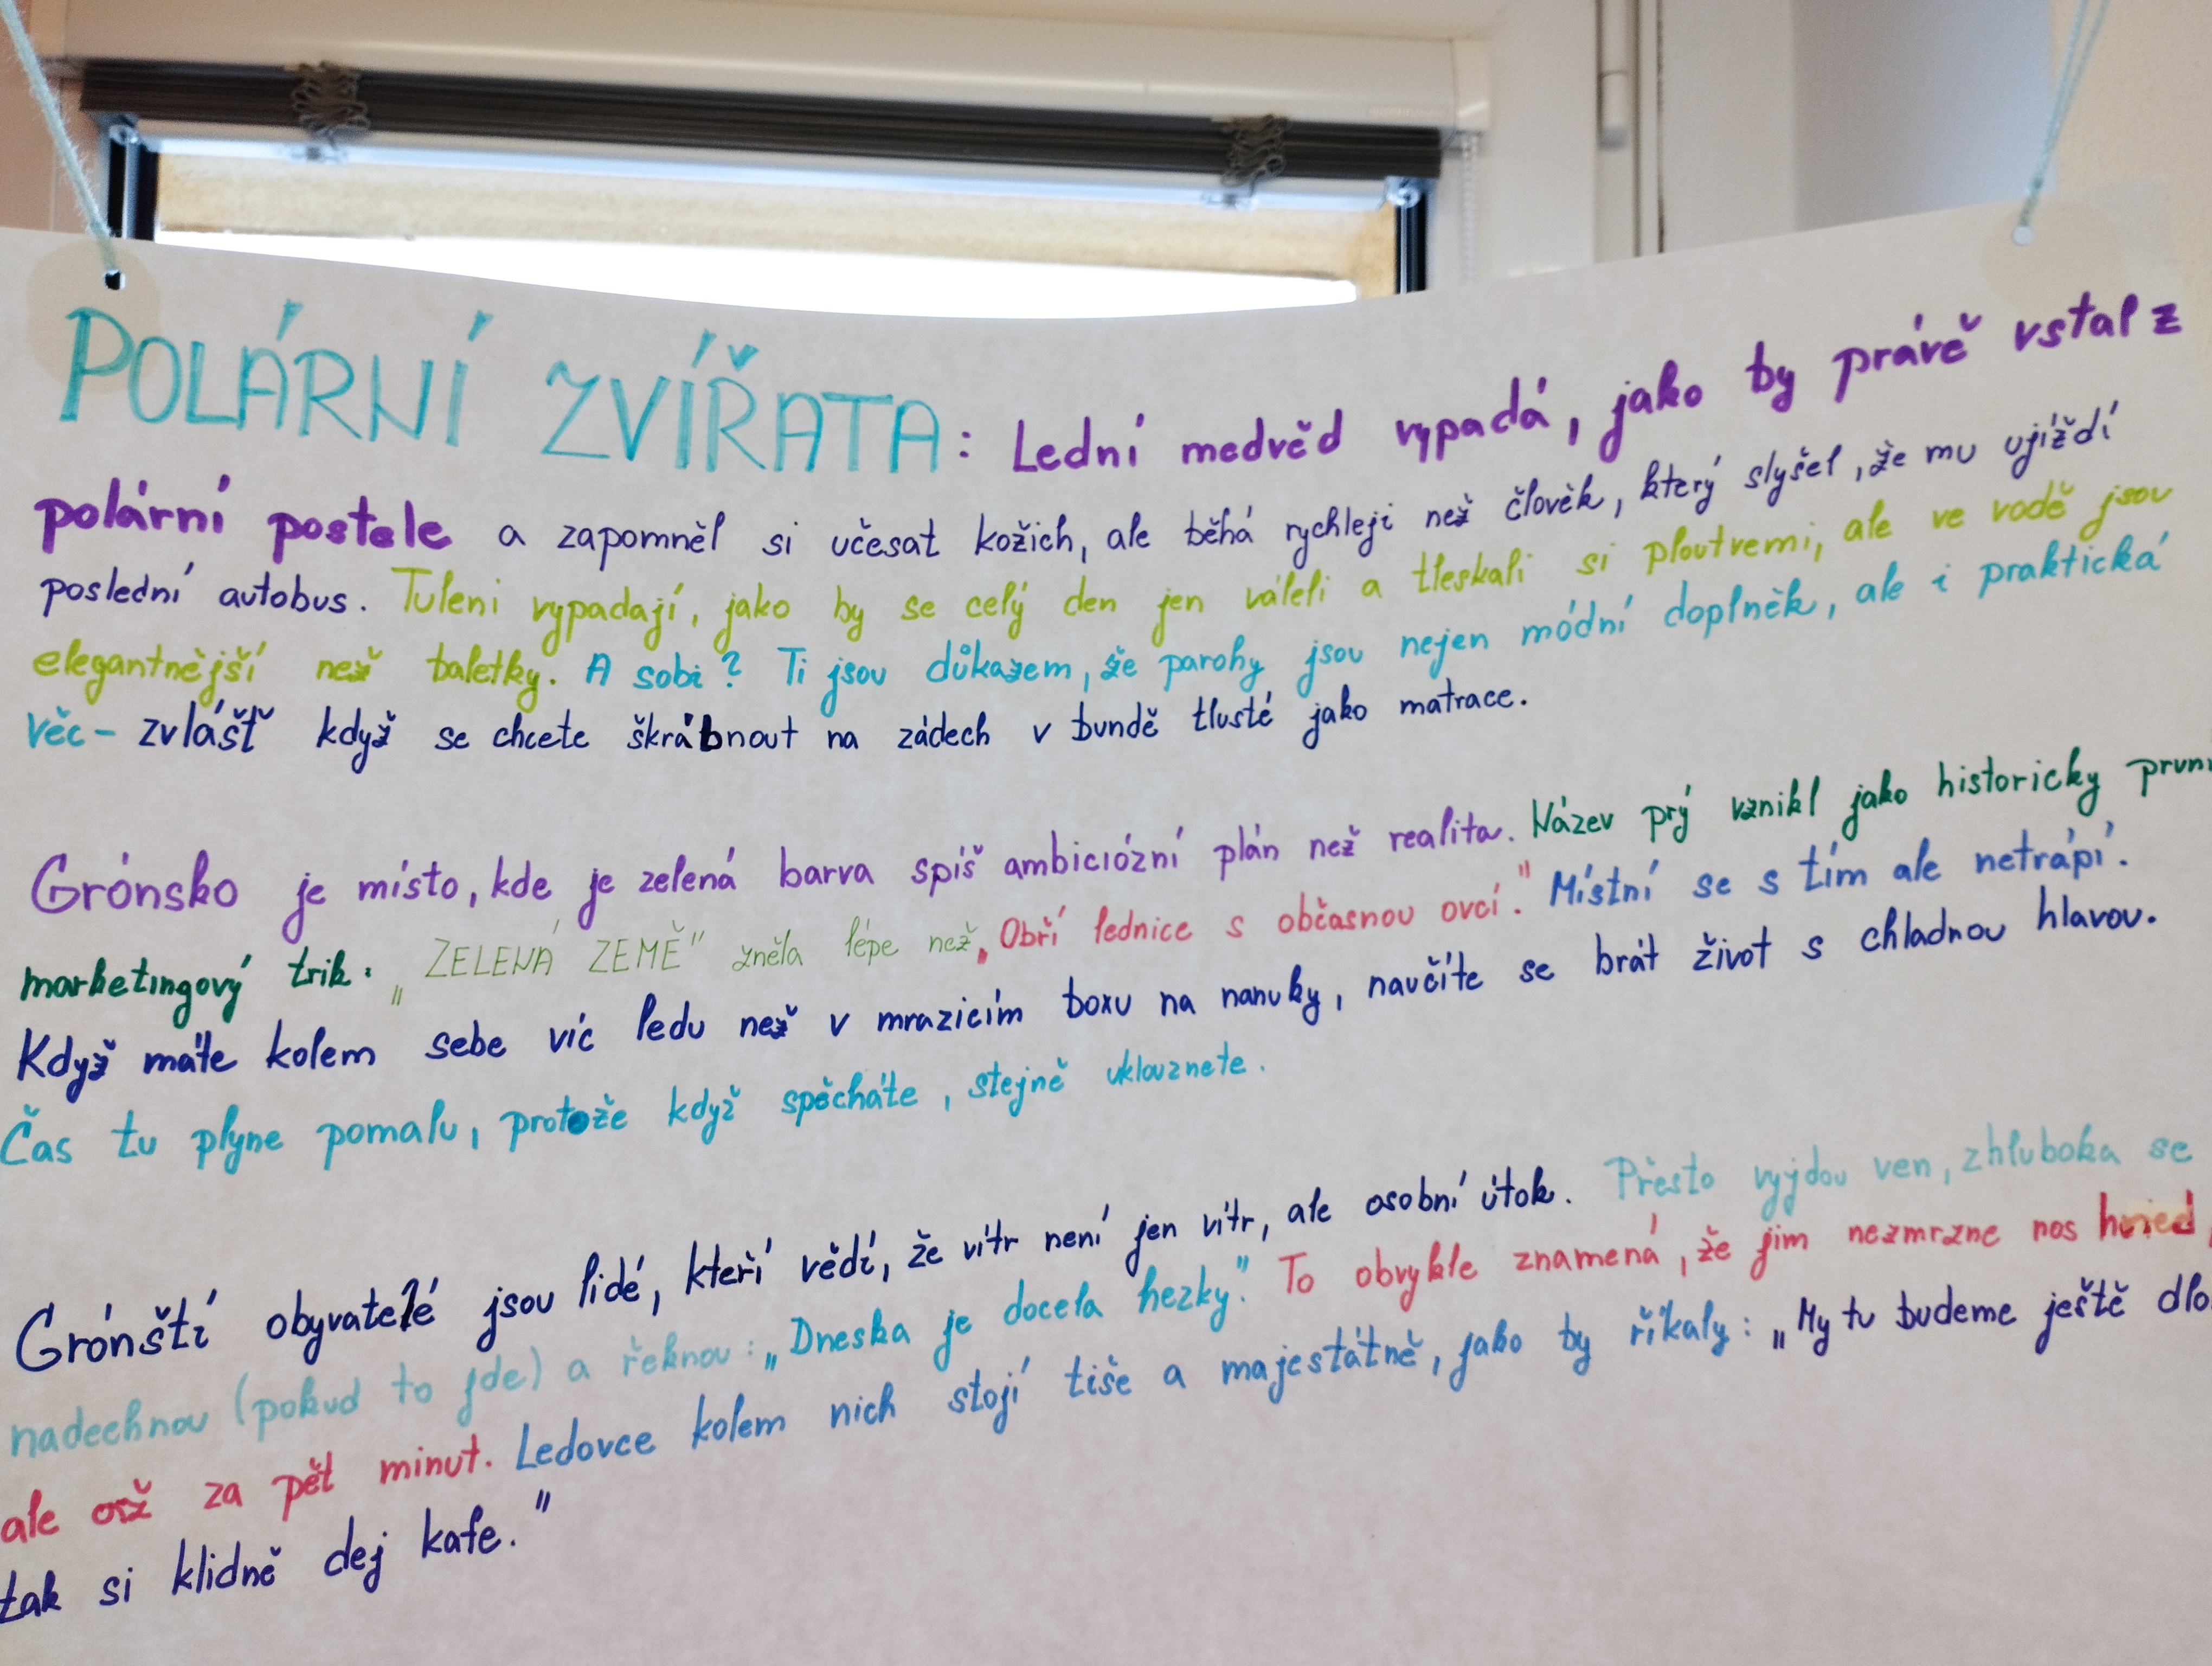 POLÁRNÍ ZVÍŘATA: Lední medvěd vypadá, jako by právě vstal z
polární postele a zapomněl si učesat kožich, ale běhá rychleji než člověk, který slyšel, že mu ujíždí
poslední autobus. Tuleni vypadají, jako by se celý den jen váleli a tleskali si ploutvemi, ale ve vodě jsou
elegantnější než baletky. A sobi? Ti jsou důkazem, že parohy jsou nejen módní doplněk, ale i praktická
věc – zvlášť když se chcete škrábnout na zádech v bundě tlusté jako matrace.
Grónsko je místo, kde je zelená barva spíš ambiciózní plán než realita. Název prý vznikl jako historicky první
marketingový trik: „ZELENÁ ZEMĚ" zněla lépe než „Obří lednice s občasnou ovcí." Místní se s tím ale netrápí.
Když máte kolem sebe víc ledu než v mrazicím boxu na nanuky, naučíte se brát život s chladnou hlavou.
Čas tu plyne pomalu, protože když spěcháte, stejně uklouznete.
Grónští obyvatelé jsou lidé, kteří vědí, že vítr není jen vítr, ale osobní útok. Přesto vyjdou ven, zhluboka se
nadechnou (pokud to jde) a řeknou: „Dneska je docela hezky." To obvykle znamená, že jim nezmrzne nos hned,
ale až za pět minut. Ledovce kolem nich stojí tiše a majestátně, jako by říkaly: „My tu budeme ještě dlo
tak si klidně dej kafe."